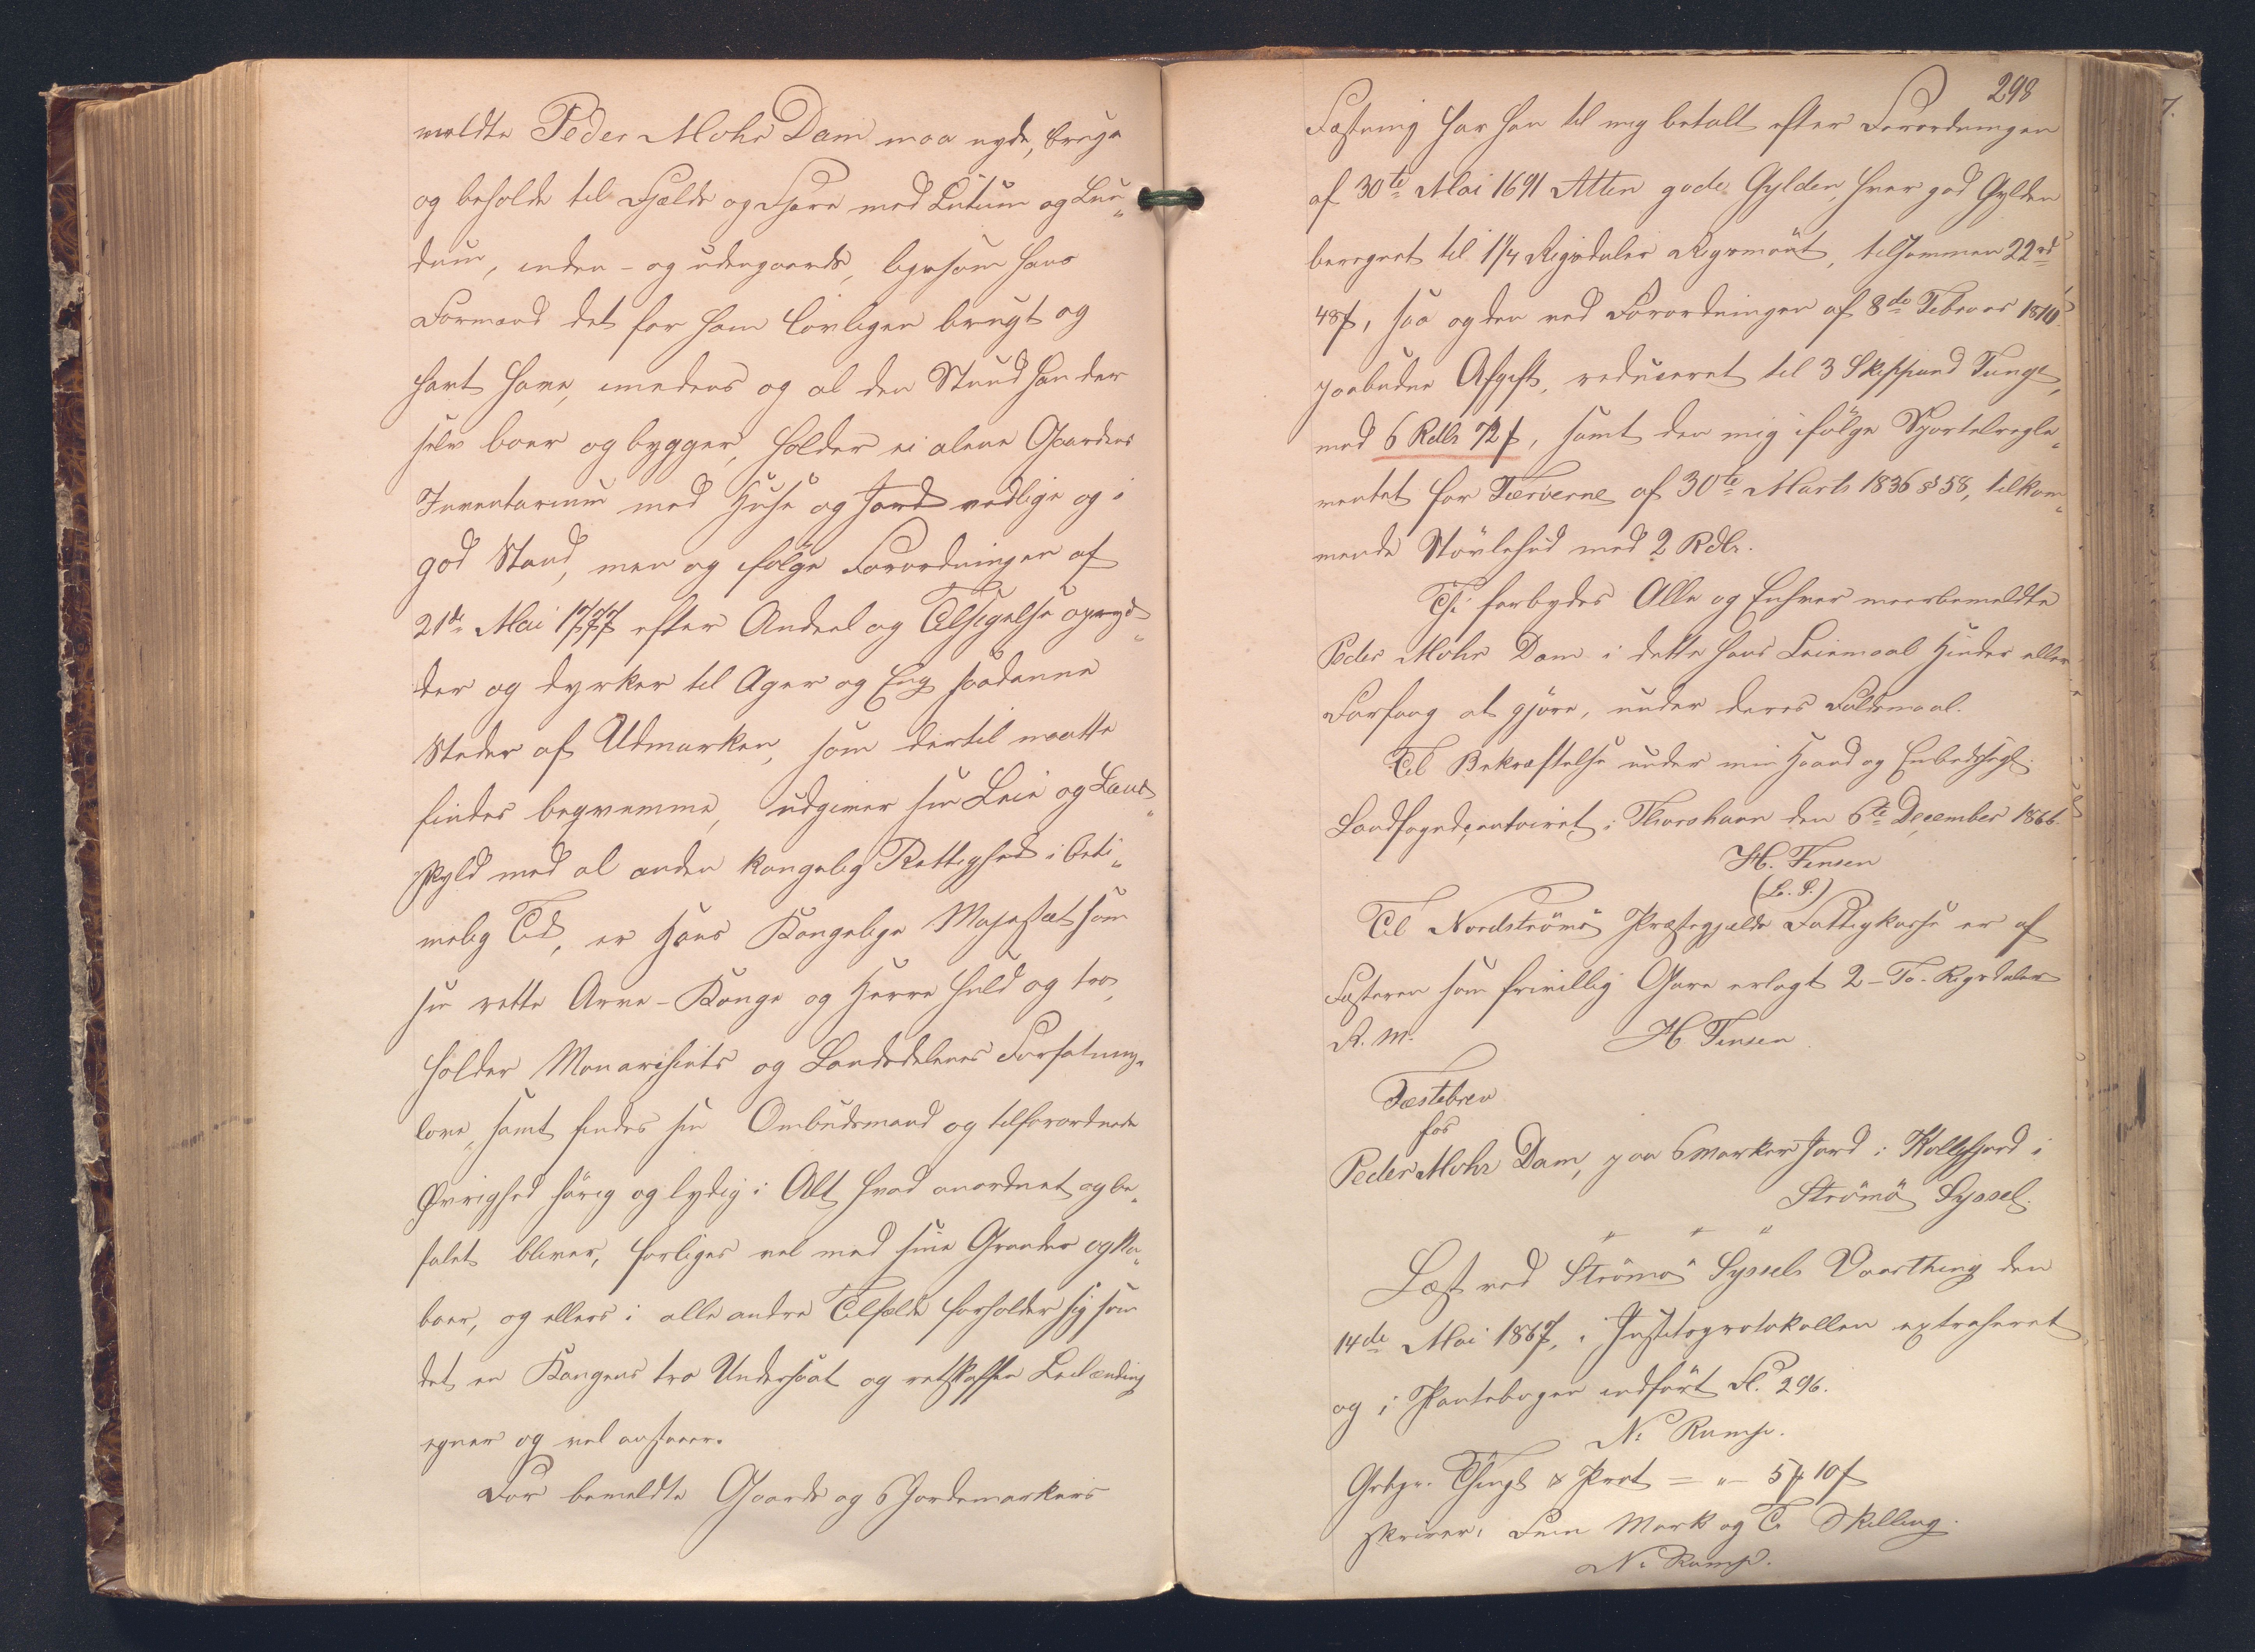 meldte Peder Mohr Dam maa nyde, bruge
og beholde til Fjelds og Fjære med Lutum og Lun„
dum, inden- og udengaards, ligesom hans
Formand det før ham lovligen brugt og
havt have, imedens og al den Stund han der
selv boer og bygger, holder ei alene Gaardens
Inventarium med Huse og Jord vedlige og i
god Stand, men og ifølge Forordningen af
21de Mai 1777 efter Andeel og Tilsigelse opryd„
der og dyrker til Ager og Eng saadanne
Steder af Udmarken, som dertil maatte
findes beqvemme, udgiver sin Leie og Land„
skyld med al anden kongelig Rettighed i beti„
melig Tid, er Hans Kongelige Majestæt som
sin rette Arve-Konge og Herre huld og tro,
holder Monarchiets og Landsdelenes Forfatnings„
love, samt findes sin Ombudsmand og tilforordnede
Øvrighed hørig og lydig i Alt hvad anordnet og be„
falet bliver, forliges vel med sine Grander og Na„
boer, og ellers i alle andre Tilfælde forholder sig som
det en Kongens tro Undersaat og retskaffen Leilænding
egner og vel anstaaer.
For bemeldte Gaards og 6 Jordemarkers
298
Fæstning har han til mig betalt efter Forordningen
af 30te Mai 1691 Atten gode Gylden, hver god Gylden
beregnet til 1 1/4 Rigsdaler Rigsmønt, tilsammen 22rd
48ß, saa og den ved Forordningen af 8de Februar 1810
paabudne Afgift, reduceret til 3 Skippund Tunge,
med 6 Rdlr 72ß, samt den mig ifølge Sportelregle„
mentet for Færøerne af 30te Marts 1836 § 58, tilkom„
mende Støvlehud med 2 Rdlr.
Thi forbydes Alle og Enhver meerbemeldte
Peder Mohr Dam i dette hans Leiemaal Hinder eller
Forfang at gjøre, under deres Faldsmaal.
Til Bekræftelse under min Haand og Embedssegl.
Landfogedcontoiret i Thorshavn den 6te December 1866.
H. Finsen
(L. S.)
Til Nordstrømø Præstegjelds Fattigkasse er af
Fæsteren som frivillig Gave erlagt 2 - To - Rigsdaler
R. M.
H Finsen
Fæstebrev
for
Peder Mohr Dam, paa 6 Marker Jord i Kollefjord i
Strømø Syssel.
Læst ved Strømø Syssels Vaarthing den
14de Mai 1867, i Justitsprotokollen extraheret
og i Pantebogen indført Fl. 296.
N. Rump.
Gebyr. Thingl & Prot = „ - 5 ₰ 10ß
skriver: Fem Mark og Ti Skilling.
N. Rump.